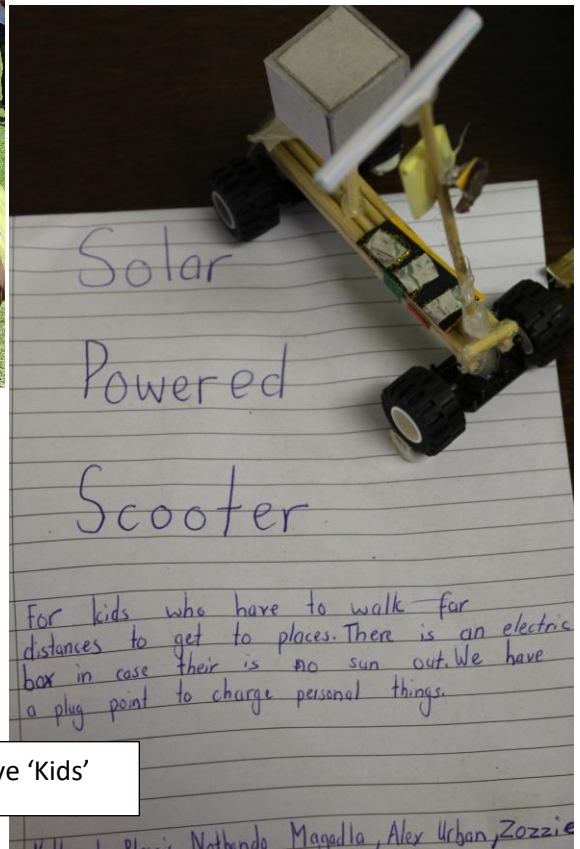 Solar
Powered
Scooter
For kids who have to walk far
distances to get to places. There is an electric
box in case their is no sun out. We have
a plug point to charge personal things.
'Kids'
Magadla, Alex Urban, Zozzie